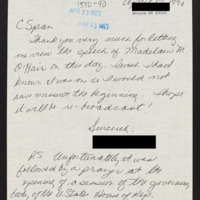 1550-90
C Span
Thank you very much for letting
me view the speech of Madelain M
O'Hair on this day. I wish I had
known it was on so I would not
have missed the beginning. I hope
it will be re-broadcast!
Sincerely
PS Unfortunately it was
followed by a prayer at the
opening of a session of the governing
body of the U State House of Rep.